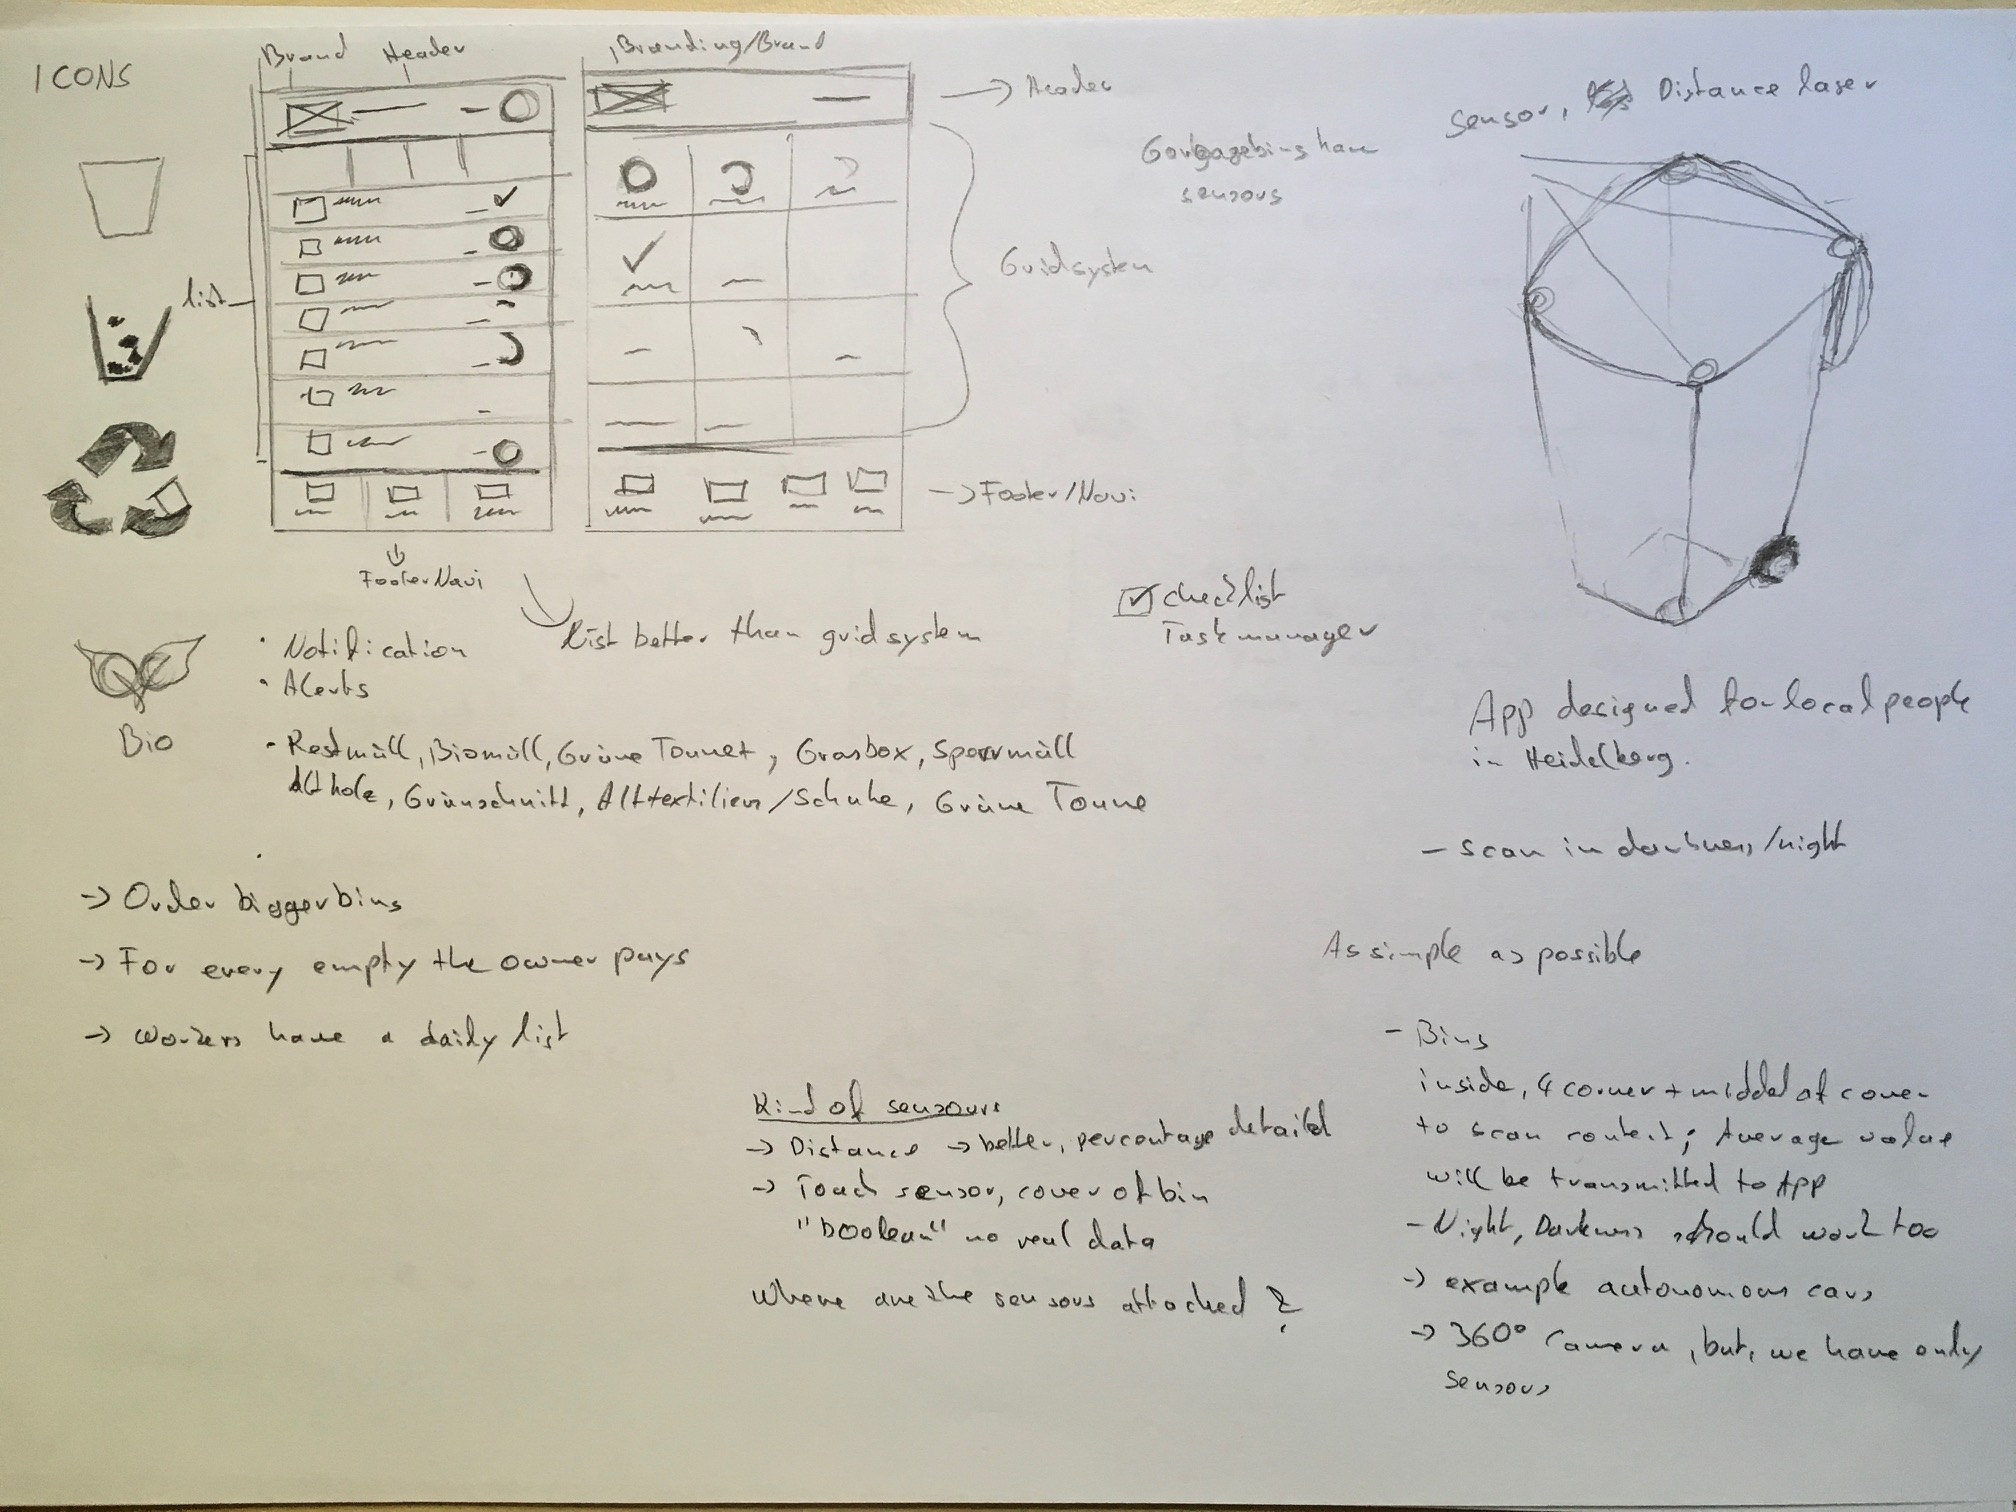 ICONS
Brand Header
Branding/Brand
→ Header
Sensor, Distance laser
Garbagebins have
sensors
list
Gridsystem
→ Footer/Navi
Footer Navi
List better than gridsystem
☑ checklist
Taskmanager
• Notification
• Alerts
Bio
• Restmüll, Biomüll, Grüne Tonnet, Grasbox, Sperrmüll
Altholz, Grünschnitt, Alttextilien/Schuhe, Grüne Tonne
App designed for local people
in Heidelberg.
- scan in darkness/night
→ Order bigger bins
→ For every empty the owner pays
→ workers have a daily list
As simple as possible
Kind of sensours
→ Distance → better, percentage detaild
→ Touch sensor, cover of bin
"boolean" no real data
Where are the sensors attached?
- Bins
inside, 4 corner + middel of cover
to scan content; Average value
will be transmitted to App
- Night, Darkness should work too
→ example autonomous cars
→ 360° Camera, but, we have only
sensors